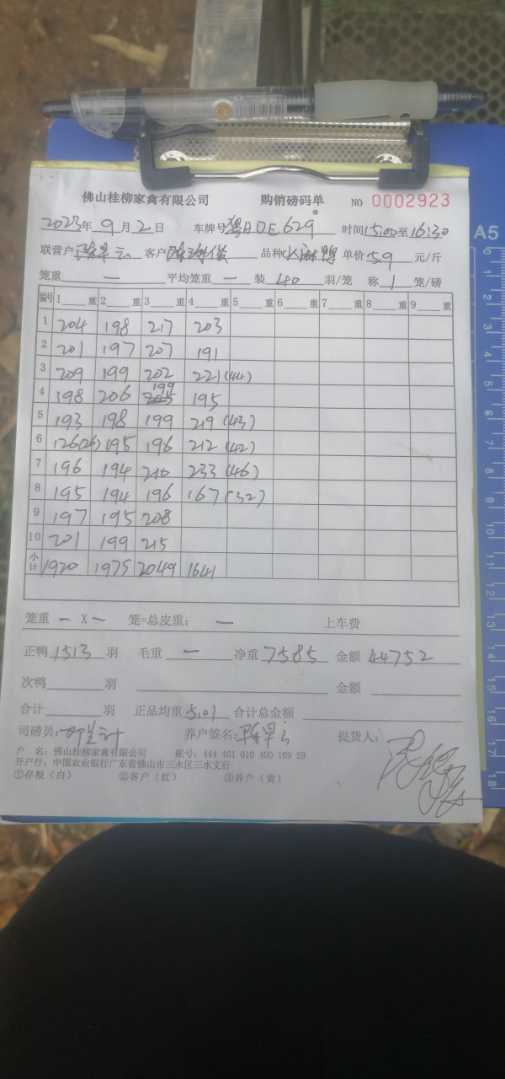 佛山桂柳家禽有限公司 购销磅码单 NO 0002923
2023年 9 月 2 日 车牌号粤ADE629 时间15:00至16:30
联营户 客户 品种 单价5.9 元/斤
笼重 — 平均笼重 — 装 40 羽/笼 称 1 笼/磅
编号 1 重 2 重 3 重 4 重 5 重 6 重 7 重 8 重 9 重
1 204 198 217 203
2 201 197 207 191
3 209 199 202 221(44)
4 198 206 199 195
5 193 198 199 219(43)
6 126(26) 195 196 212(42)
7 196 194 210 233(46)
8 195 194 196 167(32)
9 197 195 208
10 201 199 215
小计 1920 1975 2049 1641
笼重 — X — 笼=总皮重: — 上车费
正鸭 1513 羽 毛重 — 净重 7585 金额 44752
次鸭 羽 金额
合计 羽 正品均重 5.01 合计总金额
司磅员: 养户签名: 提货人:
户 名: 佛山桂柳家禽有限公司 账号:
开户行: 中国农业银行广东省佛山市三水区三水支行
①存根(白) ②客户(红) ③养户(黄)
A5
0 1 2 3 4 5 6 7 8 9 10 11 12 13 14 15 16 17 18